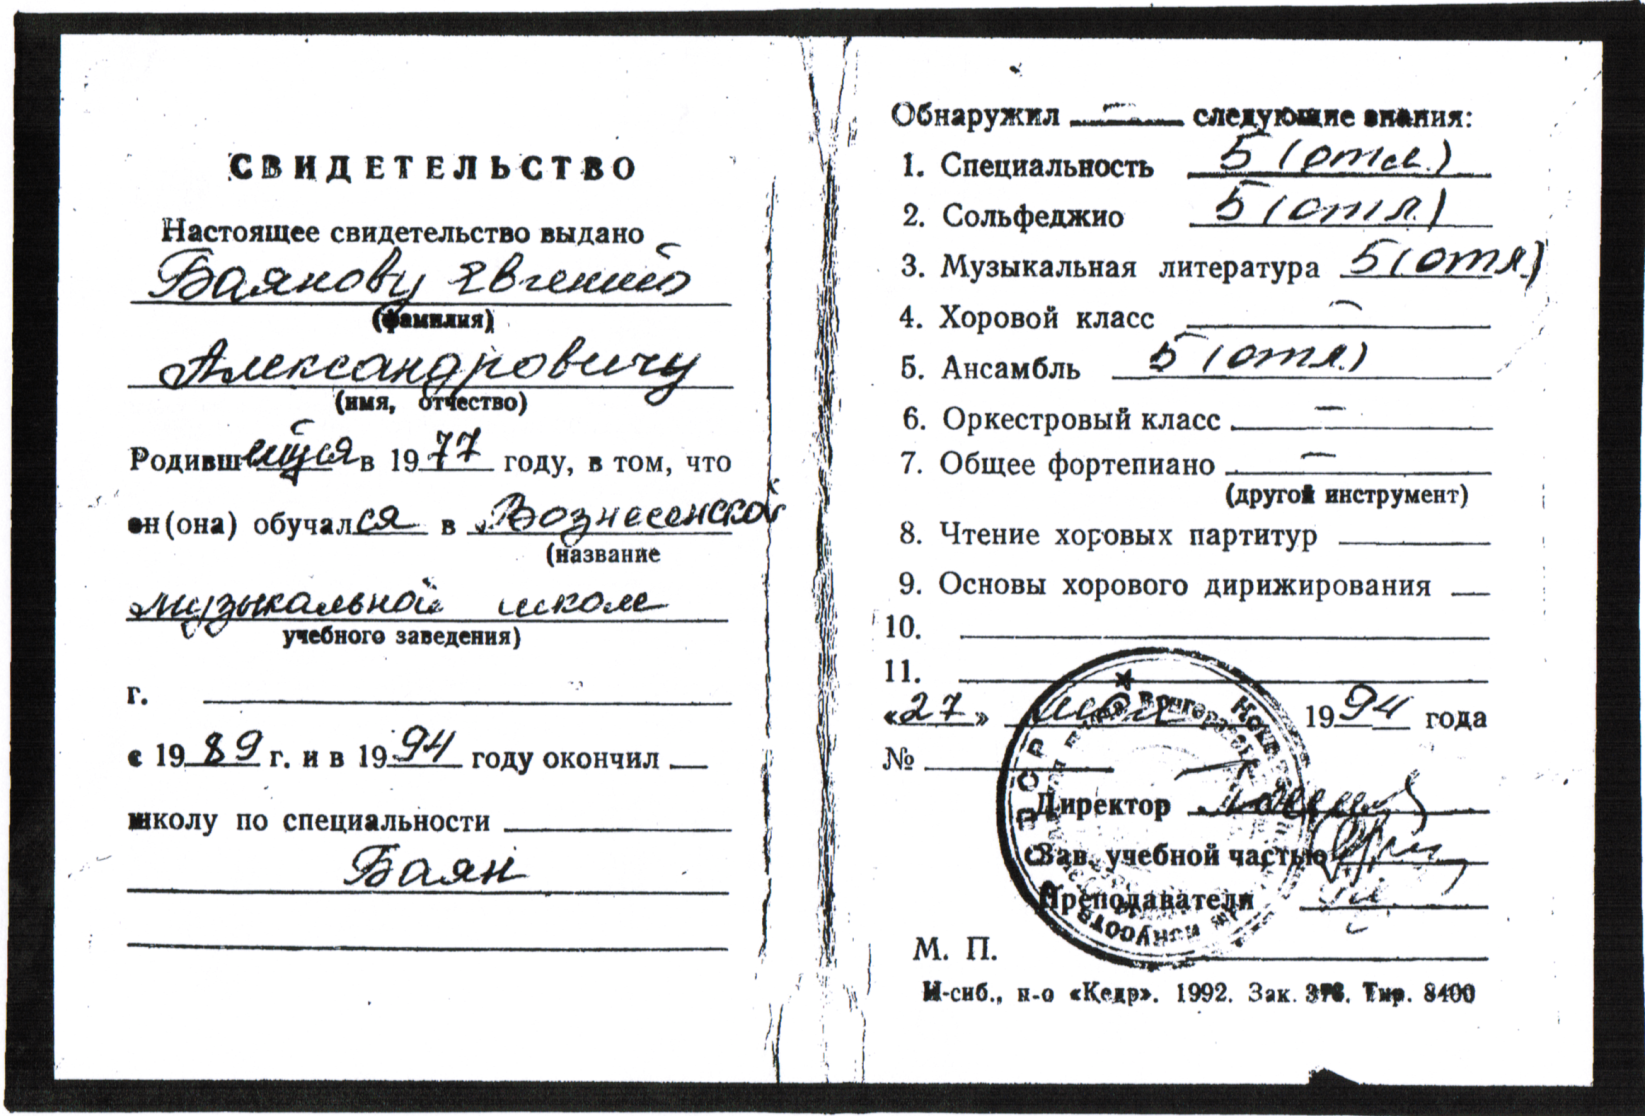 СВИДЕТЕЛЬСТВО
Настоящее свидетельство выдано
Баянову Евгению
(фамилия)
Александровичу
(имя, отчество)
Родившийся в 1977 году, в том, что
он(она) обучался в Вознесенской
(название
музыкальной школе
учебного заведения)
г.
с 1989 г. и в 1994 году окончил
школу по специальности
Баян
Обнаружил — следующие знания:
1. Специальность 5 (отл.)
2. Сольфеджио 5 (отл.)
3. Музыкальная литература 5 (отл.)
4. Хоровой класс —
5. Ансамбль 5 (отл.)
6. Оркестровый класс —
7. Общее фортепиано —
(другой инструмент)
8. Чтение хоровых партитур
9. Основы хорового дирижирования
10.
11.
«27» 1994 года
№
Директор
Зав. учебной частью
Преподаватели
М. П.
Н-сиб., и-о «Кедр». 1992. Зак. Тир. 8400